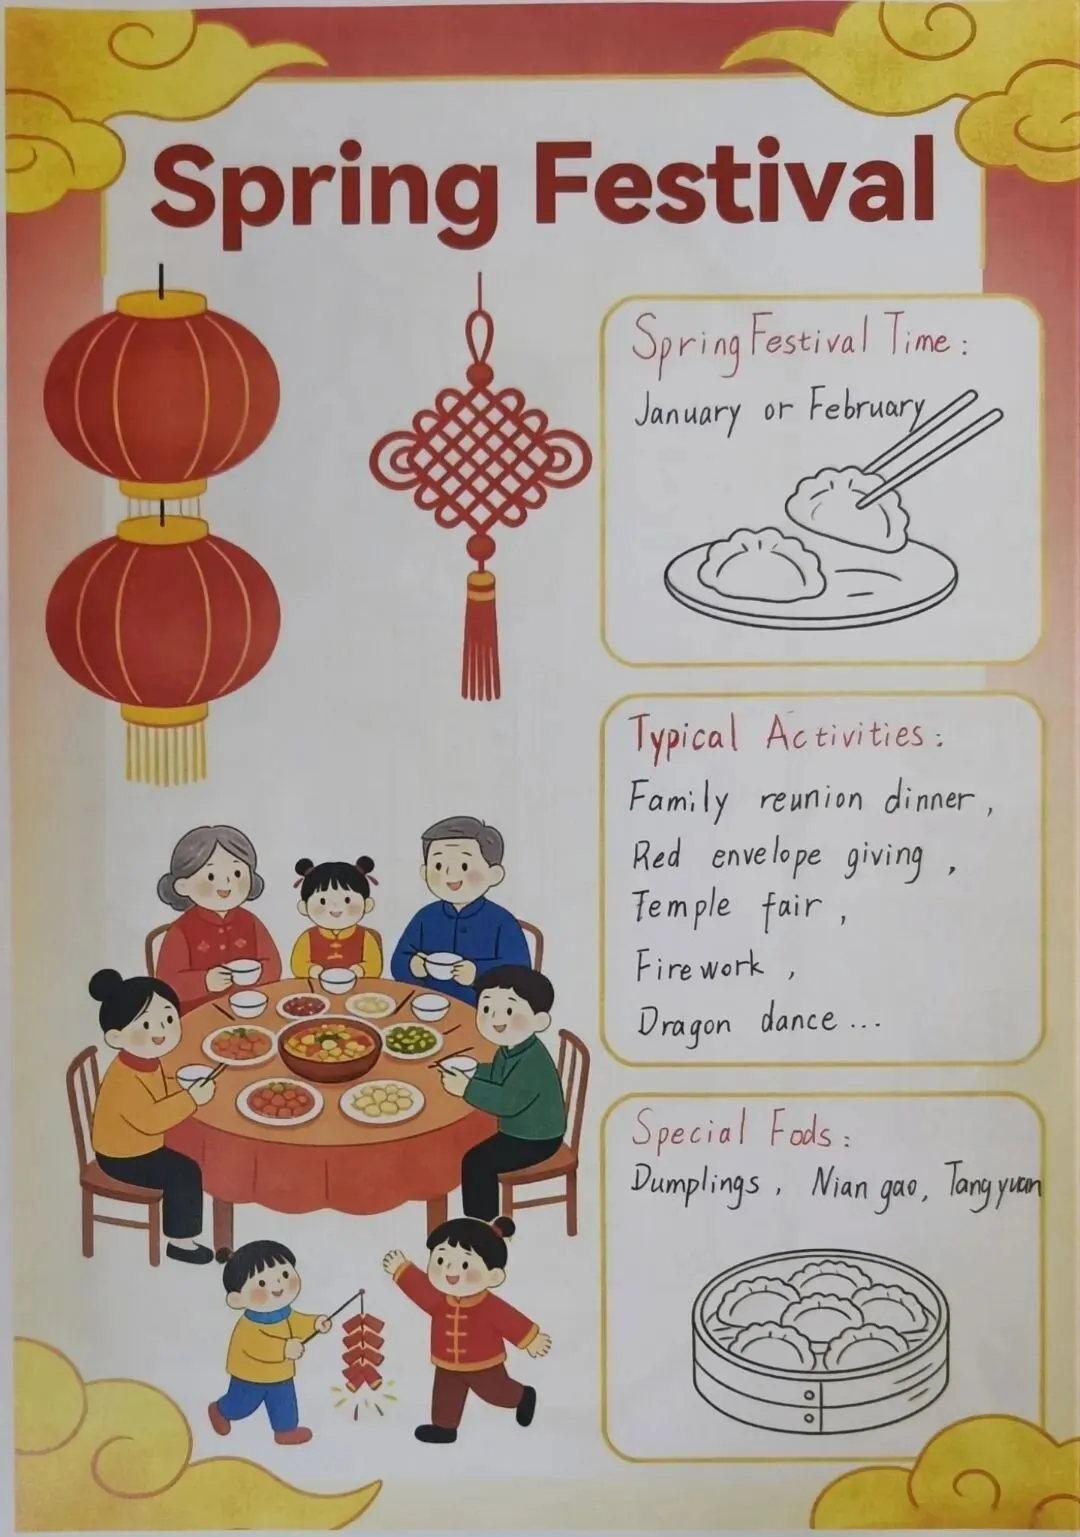 Spring Festival
Spring Festival Time:
January or February
Typical Activities:
Family reunion dinner,
Red envelope giving,
Temple fair,
Firework,
Dragon dance...
Special Fods:
Dumplings, Nian gao, Tang yuan